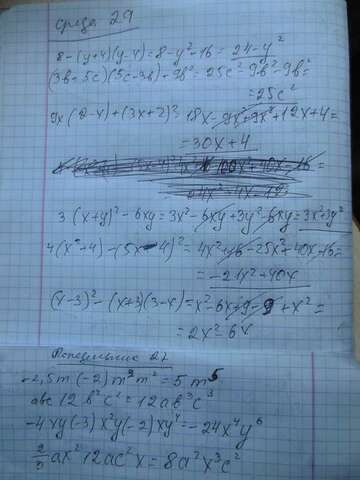 среда 29
8-(y+4)(y-4)=8-y²-16=24-y²
(3b+5c)(5c-3b)+9b²=25c²-9b²-9b²=
=25c²
9x(2-x)+(3x+2)²=18x-9x²+9x²+12x+4=
=30x+4
3(x+y)²-6xy=3x²-6xy+3y²-6xy=3x²+3y²
4(x²+4)-(5x-4)²=4x²+16-25x²+40x-16=
=-21x²+40x
(x-3)²-(x+3)(3-x)=x²-6x+9-9+x²=
=2x²-6x
Понедельник 27
-2,5m(-2)m²m²=5m⁵
abc12b²c²=12ab³c³
-4xy(-3)x²y(-2)xy⁴=-24x⁴y⁶
2/3ax²12ac²x=8a²x³c²